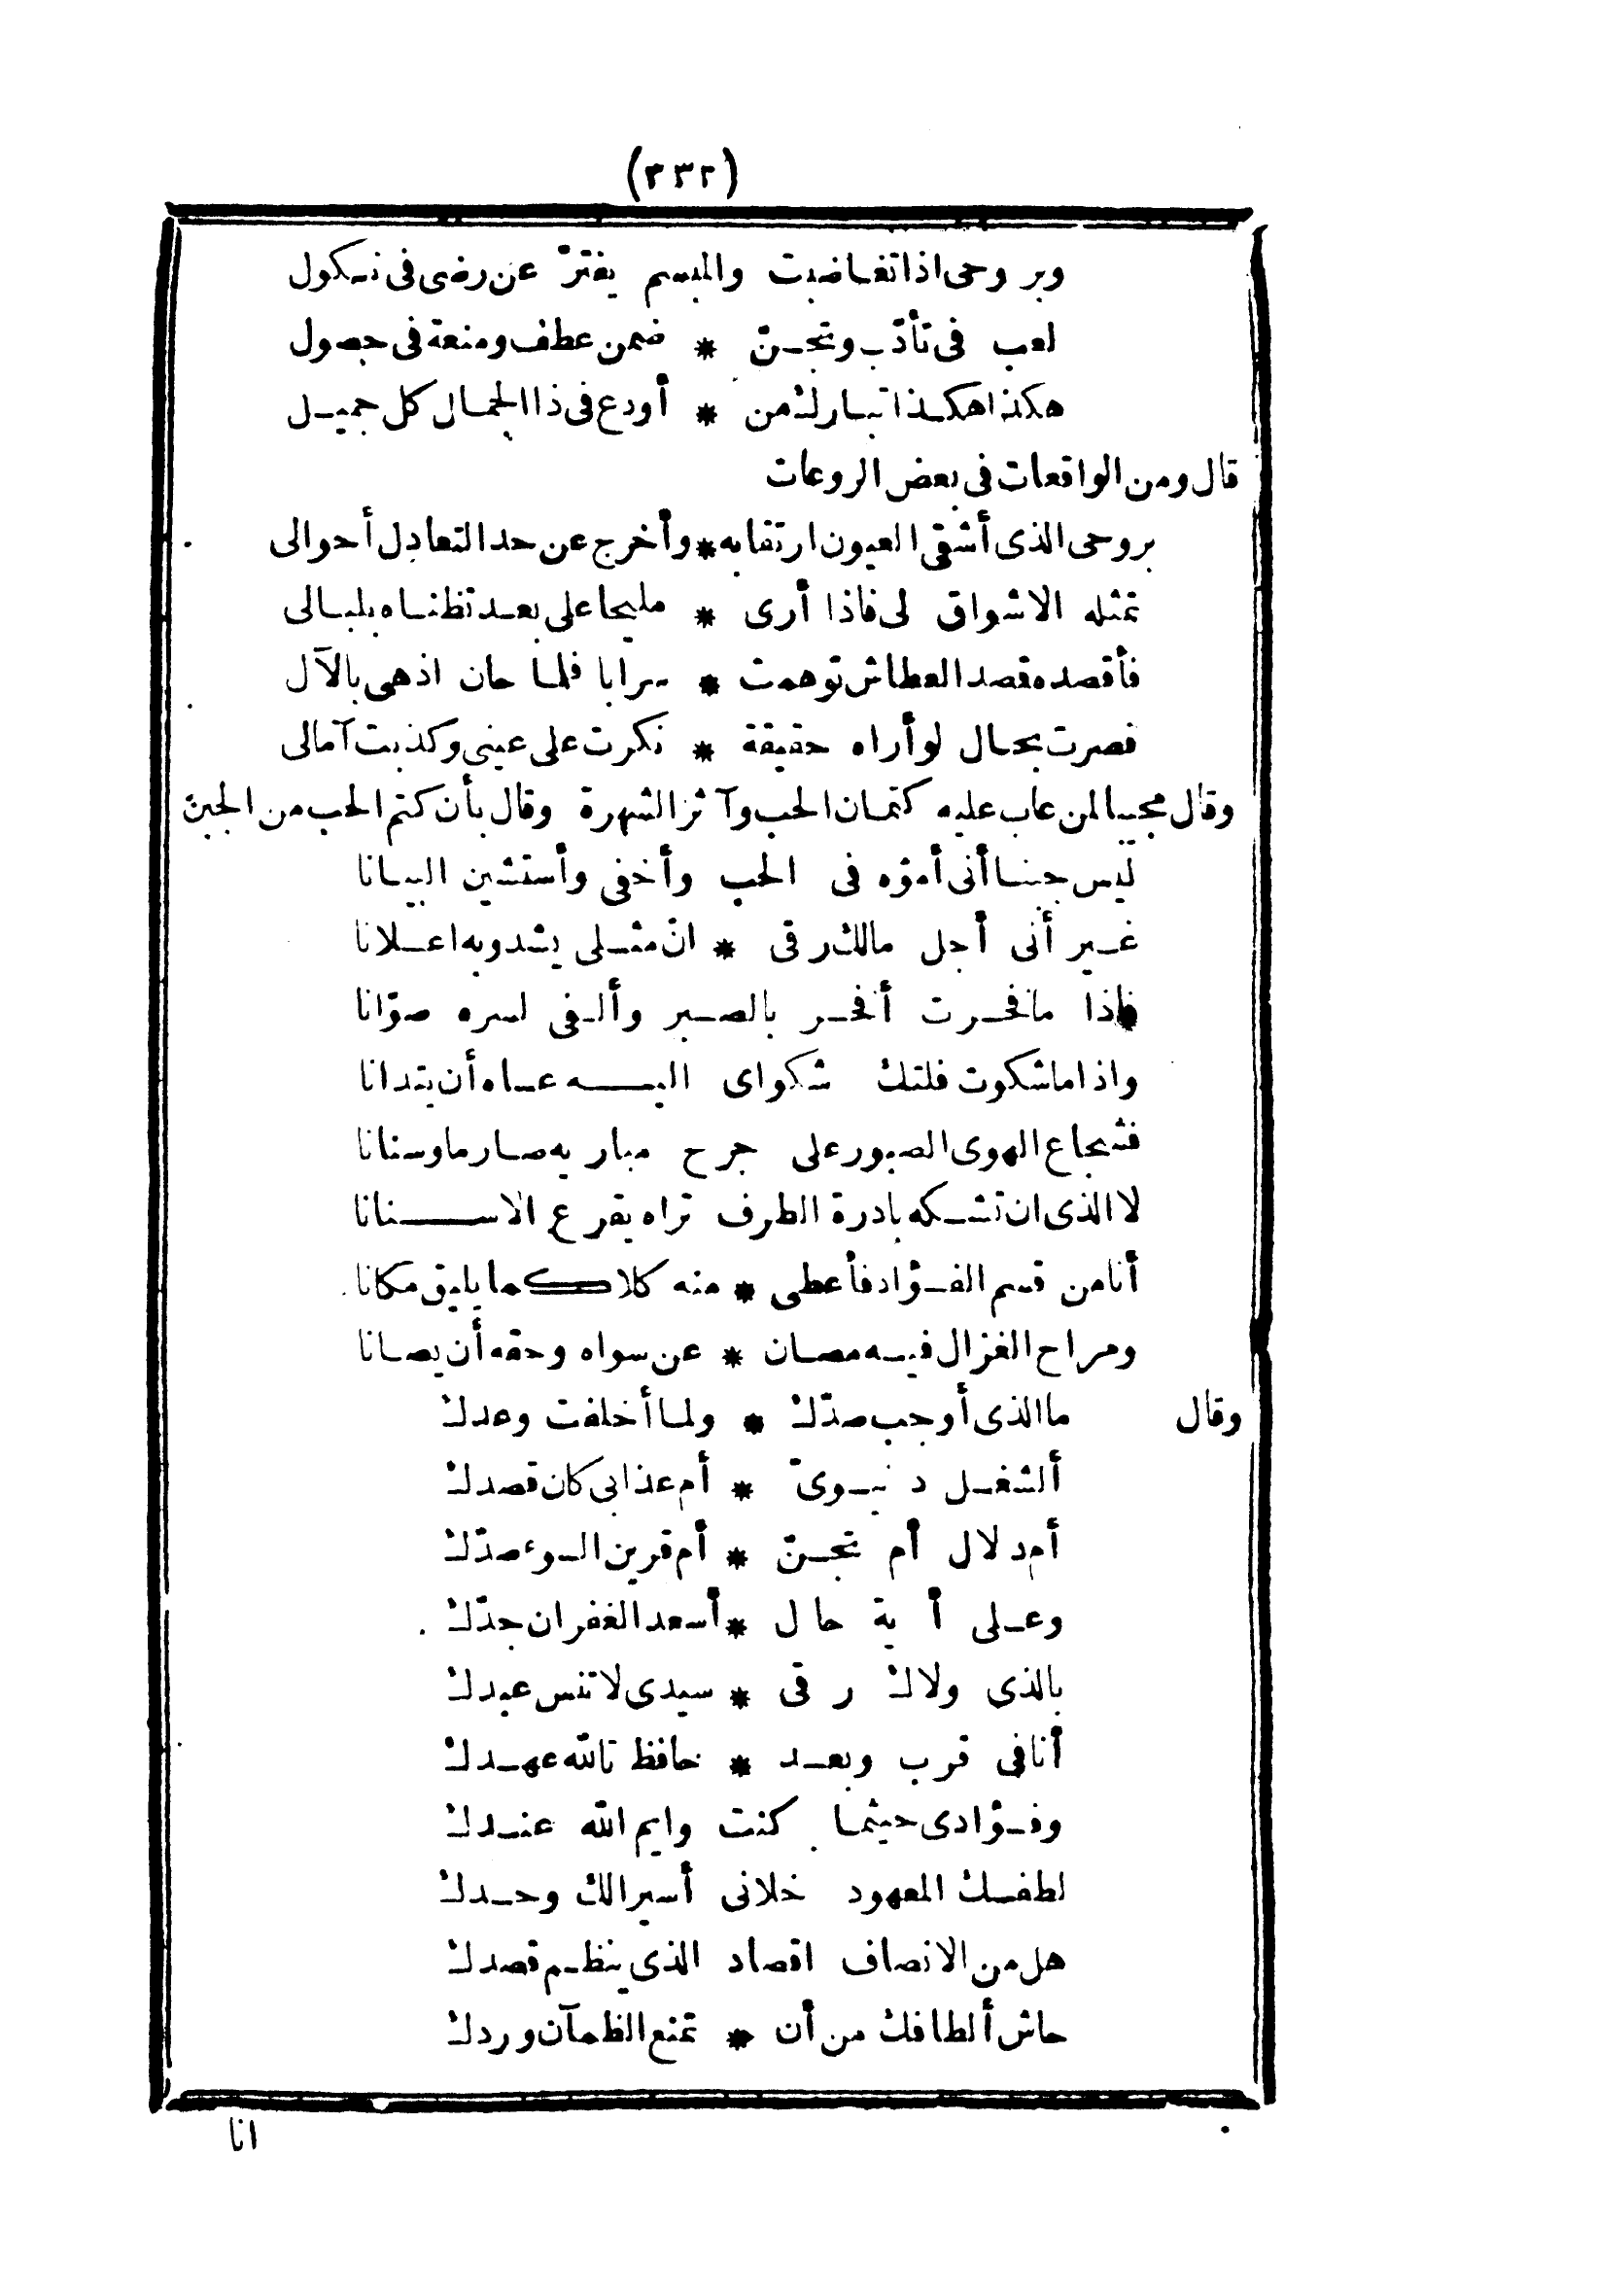 (٣٣٢)
وبروحى اذا تغاضبت والمبسم يفترّ عن رضى فى نكول
لعب فى تأدّب وتجنّ * ضمن عطف ومنعة فى حصول
هكذا هكذا تبارك من * أودع فى ذا الجمال كل جميل
قال ومن الواقعات فى بعض الروعات
بروحى الذى أشقى العيون ارتقابه * وأخرج عن حد التعادل أحوالى
تمثله الاشواق لى فاذا أرى * مليحا على بعد تظناه بلبالى
فأقصده قصد العطاش توهمت * سرابا فلما حان اذ هى بالآل
فصرت بحال لو أراه حقيقة * نكرت على عينى وكذبت آمالى
وقال مجيبا لمن عاب عليه كتمان الحب وآثر الشهرة وقال بأن كتم الحب من الجبن
ليس جبنا أنى أموّه فى الحب وأخفى وأستشين البيانا
غير أنى أجل مالك رقى * انّ مثلى يشدو به اعلانا
فاذا ما فخرت أفخر بالصبر وألفى لسره صوّانا
واذا ما شكوت فلتك شكواى اليه عساه أن يتدانا
فشجاع الهوى الصبور على جرح مباريه صارما وسنانا
لا الذى ان تشكه بادرة الطرف تراه يقرع الاسنانا
أنا من قسم الفؤاد فأعطى * منه كلا كما يليق مكانا
ومراح الغزال فيه مصان * عن سواه وحقه أن يصانا
وقال ما الذى أوجب صدّك * ولما أخلفت وعدك
ألشغل دنيوىّ * أم عذابى كان قصدك
أم دلال أم تجنّ * أم قرين السوء صدّك
وعلى أية حال * أسعد الغفران جدّك
بالذى ولاك رقى * سيدى لا تنس عبدك
أنا فى قرب وبعد * حافظ تالله عهدك
وفؤادى حيثما كنت وايم الله عندك
لطفك المعهود خلانى أسيرا لك وحدك
هل من الانصاف اقصاد الذى ينظم قصدك
حاش ألطافك من أن * تمنع الظمآن وردك
انا